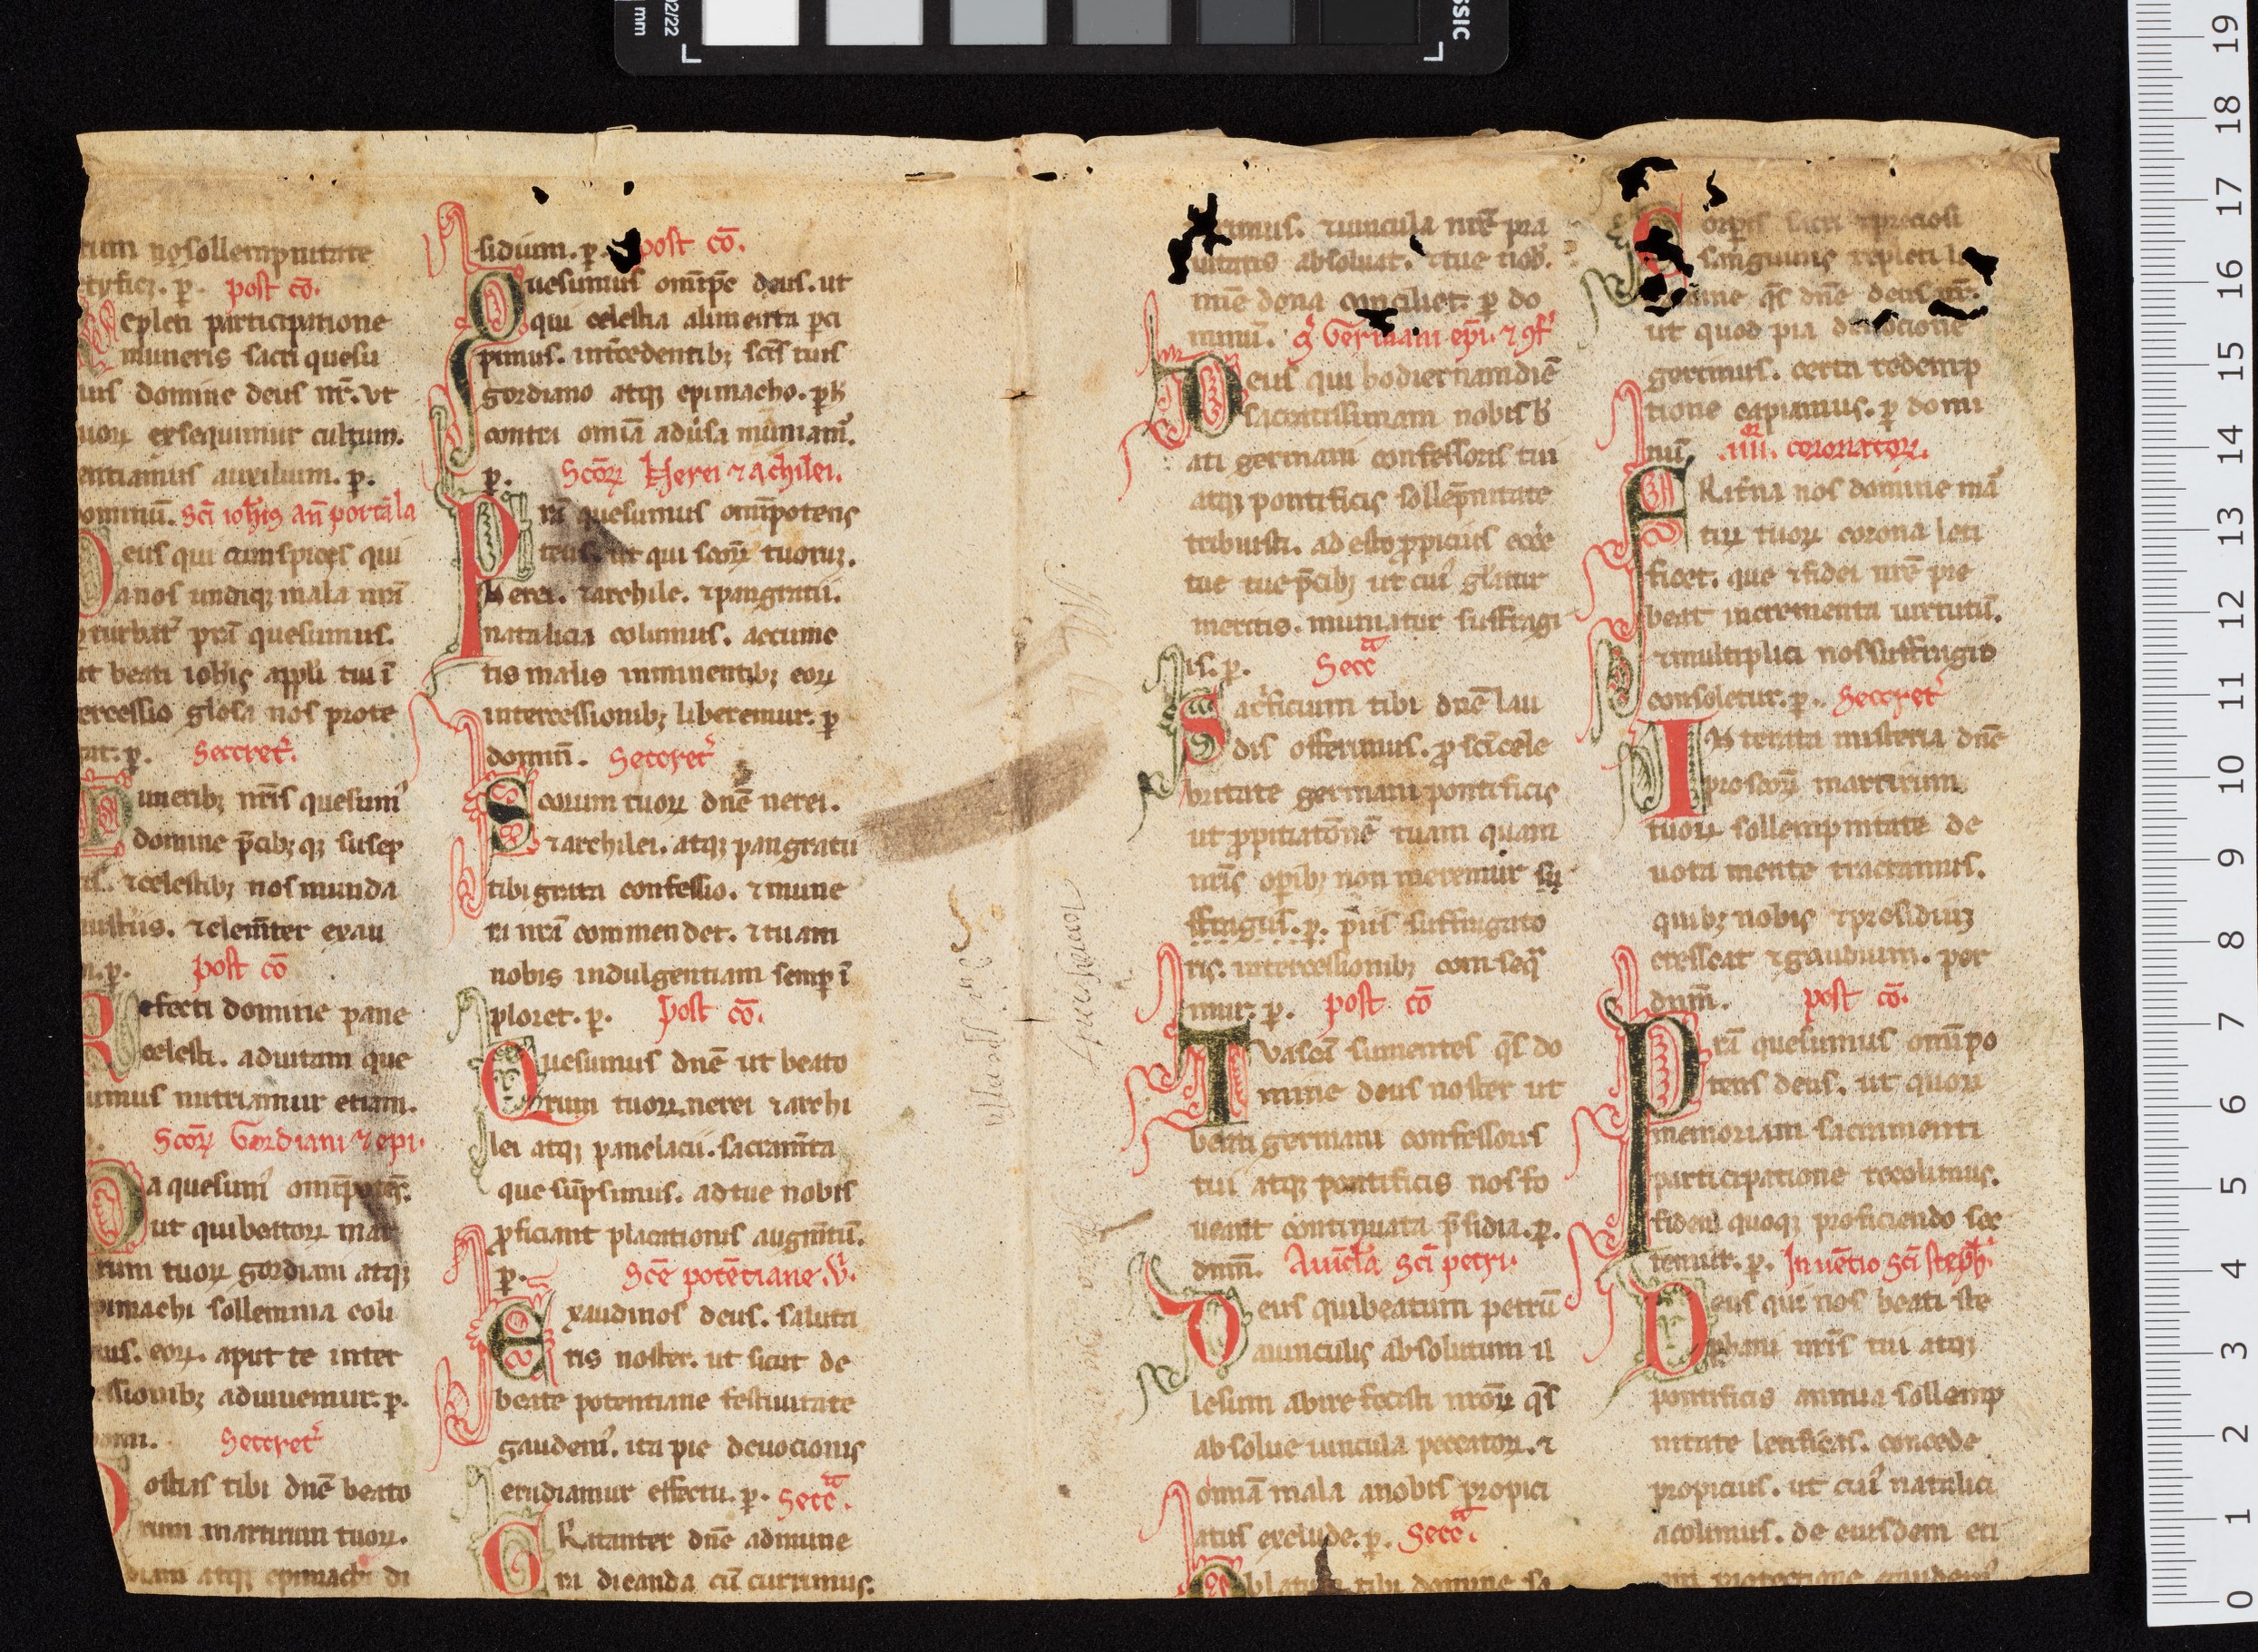 tum nos sollempnitate
etificꝫ. p̲. post cō.
epleti participatione
muneris sacri quesu
us domine deus nr̄. vt
uoꝝ exsequimur cultum.
entiamus auxilium. p̲.
ominū. Scī ioh̄is an̄ portā la
eus qui conspices qui
a nos undiqꝫ mala nrā
turbāt prā quesumus.
ut beati ioh̄is appl̄i tui ī
ercessio gl̄osa nos prote
at. p̲. Seccret᷑.
uneribꝫ nr̄is quesum᷒
domine p̄cibꝫ qꝫ suscep
is. ⁊ celestibꝫ nos munda
isteriis. ⁊ clem̄ter exau
i. p̲. post cō
Refecti domine pane
celesti. ad uitam que
umus nutriamur etiam.
Scōꝝ Gordiani ⁊ epi.
Da quesum᷒ omīpotēs.
ut qui beatoꝝ mar
rum tuoꝝ gordiani atqꝫ
pimachi sollemnia coli
us. eoꝝ. aput te inter
ssionibꝫ adiuuemur. p̲.
omi. Seccret᷑
ostias tibi dn̄e beato
rum martirum tuoꝝ.
diani atqꝫ epimachi di
sidium. p̲. post cō.
Quesumus omīpc̄ deus. ut
qui celestia alimenta p̲ci
pimus. int᷑cedentibꝫ scīs tuis
gordiano atqꝫ epimacho. p̲ h̄
contra omīa adūsa muniam᷒.
p̲. Scōꝝ Herei ⁊ achilei.
Prā quesumus omīpotens
deus. ut qui scōꝝ tuoruꝫ.
Herei. ⁊ archile. ⁊ pangratii.
natalicia colimus. accunc
tis malis inminentibꝫ eoꝝ
intercessionibꝫ liberemur. p̲
domīn. Seccret᷑
Scorum tuoꝝ dn̄e nerei.
⁊ archilei. atqꝫ pangratii
tibi grata confessio. ⁊ mune
ra nrā commendet. ⁊ tuam
nobis indulgentiam semp̲ ī
ploret. p̲. Post cō.
Quesumus dn̄e ut beato
rum tuoꝝ. nerei ⁊ archi
lei atqꝫ panclacii. sacram̄ta
que sūpsimus. ad tue nobis
ꝓficiant placationis augm̄tū.
p̲. Scē potētiane. v̄.
exaudi nos deus. saluta
ris noster. ut sicut de
beate potentiane festiuitate
gaudem᷒. ita pie deuocionis
erudiamur effectu. p̲. Secc̄.
GRatanter dn̄e ad mune
ra dicanda cū currimus.
rimus. ⁊ uincula nr̄e pra
uitatis absoluat. ⁊ tue nob̄.
mīe dona conciliet. p̲ do
minū. S̄ Germani ep̄i. ⁊ ꝯf᷑
Deus qui hodiernam diē
sacratissimam nobis b̄
ati germani confessoris tui
atqꝫ pontificis sollēpnitate
tribuisti. ad esto ꝓpicius ecc̄e
tue tue p̄cibꝫ ut cui᷒ gl̄atur
meritis. muniatur suffragi
is. p̲. Secc̄
Sacrificium tibi dn̄e lau
dis offerimus. ꝓ scī cele
britate germani pontificis
ut ꝓpitiatōnē tuam quam
nr̄is op̲ibꝫ non meremur su
ffragiis. p̲. piis suffragato
ris. intercessionibꝫ conseq
mur. p̲. post cō
Tua scā sumentes q̄s do
mine deus noster ut
beati germani confessoris
tui atqꝫ pontificis nos fo
ueant continuata p̄sidia. p̲.
dnm̄. Auīcl̄a scī petri.
Deus qui beatum petrū
a uinculis absolutum il
lesum abire fecisti nr̄oꝝ q̄s
absolue uincula peccatoꝝ. ⁊
omīa mala a nobis propici
atus exclude. p̲. Secc̄.
Oblatum tibi domine sa
Corp̲is sacri ⁊ preciosi
sanguinis repleti li
amine q̄s dn̄e deus nr̄.
ut quod pia deuocione
gerimus. certa redemp
tione capiamus. p̲ domi
nū. .iiii. coronatoꝝ.
FRat᷑na nos domine mar
tiꝝ tuoꝝ corona leti
ficet. que ⁊ fidei nr̄e pre
beat incrementa uirtutū.
⁊ multiplici nos suffragio
consoletur. p̲. Seccret᷑
Iterata misteria dn̄e
pro scōꝝ martirum
tuoꝝ sollempnitate de
uota mente tractamus.
quibꝫ nobis ⁊ presidiuꝫ
crescat ⁊ gaudium. per
dnm̄. post cō.
Prā quesumus omīpo
tens deus. ut quoꝝ
memoriam sacramenti
participatione recolimus.
fidem quoqꝫ proficiendo sec
temur. p̲. Inuētio scī steph̄.
Deus qui nos beati ste
phani mr̄is tui atqꝫ
pontificis annua sollemp
nitate letificas. concede
propicius. ut cui᷒ natalici
a colimus. de eiusdem eti
am protectione gaudeam᷒